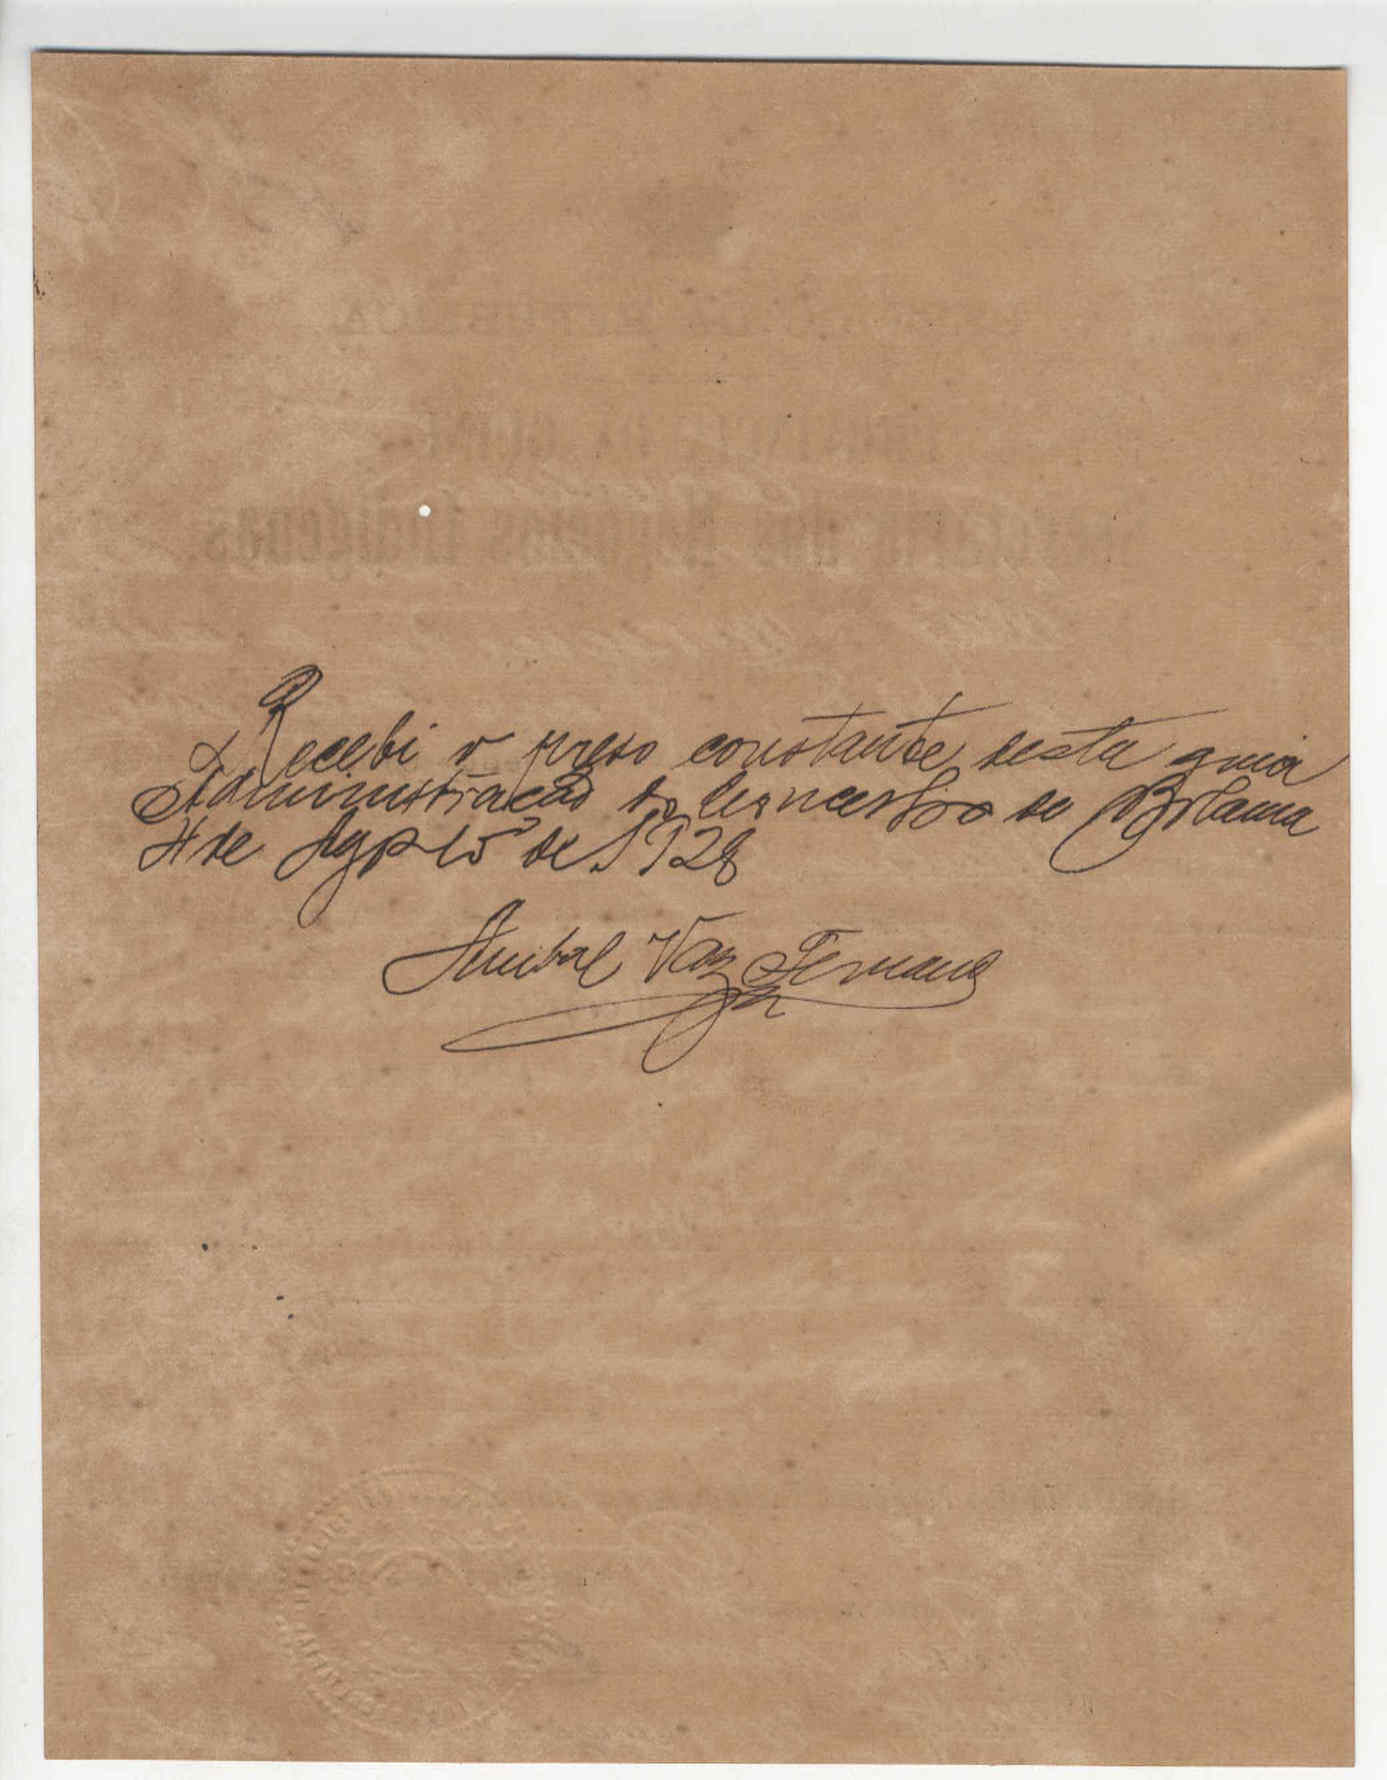 Recebi o preso constante desta guia
Administração do Concelho de Bolama
4 de Agosto de 1928
Anibal Vaz Fernand